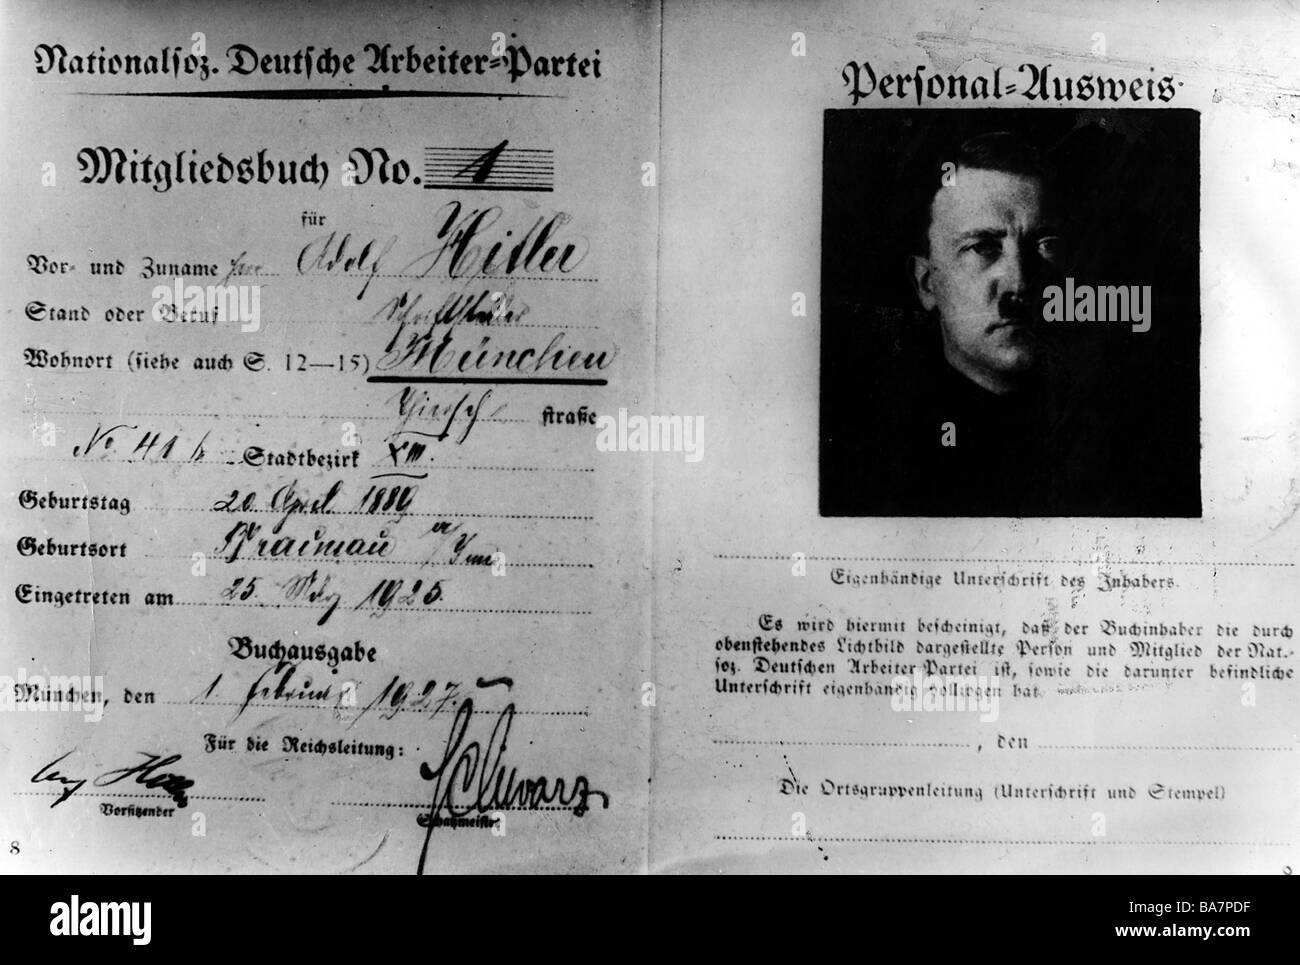 Nationalsoz. Deutsche Arbeiter-Partei
Mitgliedsbuch No. 1
für
Vor- und Zuname Herr Adolf Hitler
Stand oder Beruf Schriftsteller
Wohnort (siehe auch S. 12—15) München
Thiersch straße
No 41 Stadtbezirk XIII.
Geburtstag 20. April 1889
Geburtsort Braunau a/Inn
Eingetreten am 25. 1925.
Buchausgabe
München, den 1. Februar 1927.
Für die Reichsleitung:
Schwarz
Vorsitzender
Schatzmeister
8
Personal-Ausweis
Eigenhändige Unterschrift des Inhabers.
Es wird hiermit bescheinigt, daß der Buchinhaber die durch
obenstehendes Lichtbild dargestellte Person und Mitglied der Nat.-
soz. Deutschen Arbeiter Partei ist, sowie die darunter befindliche
Unterschrift eigenhändig vollzogen hat.
, den
Die Ortsgruppenleitung (Unterschrift und Stempel)
9
alamy
Image ID: BA7PDF
www.alamy.com